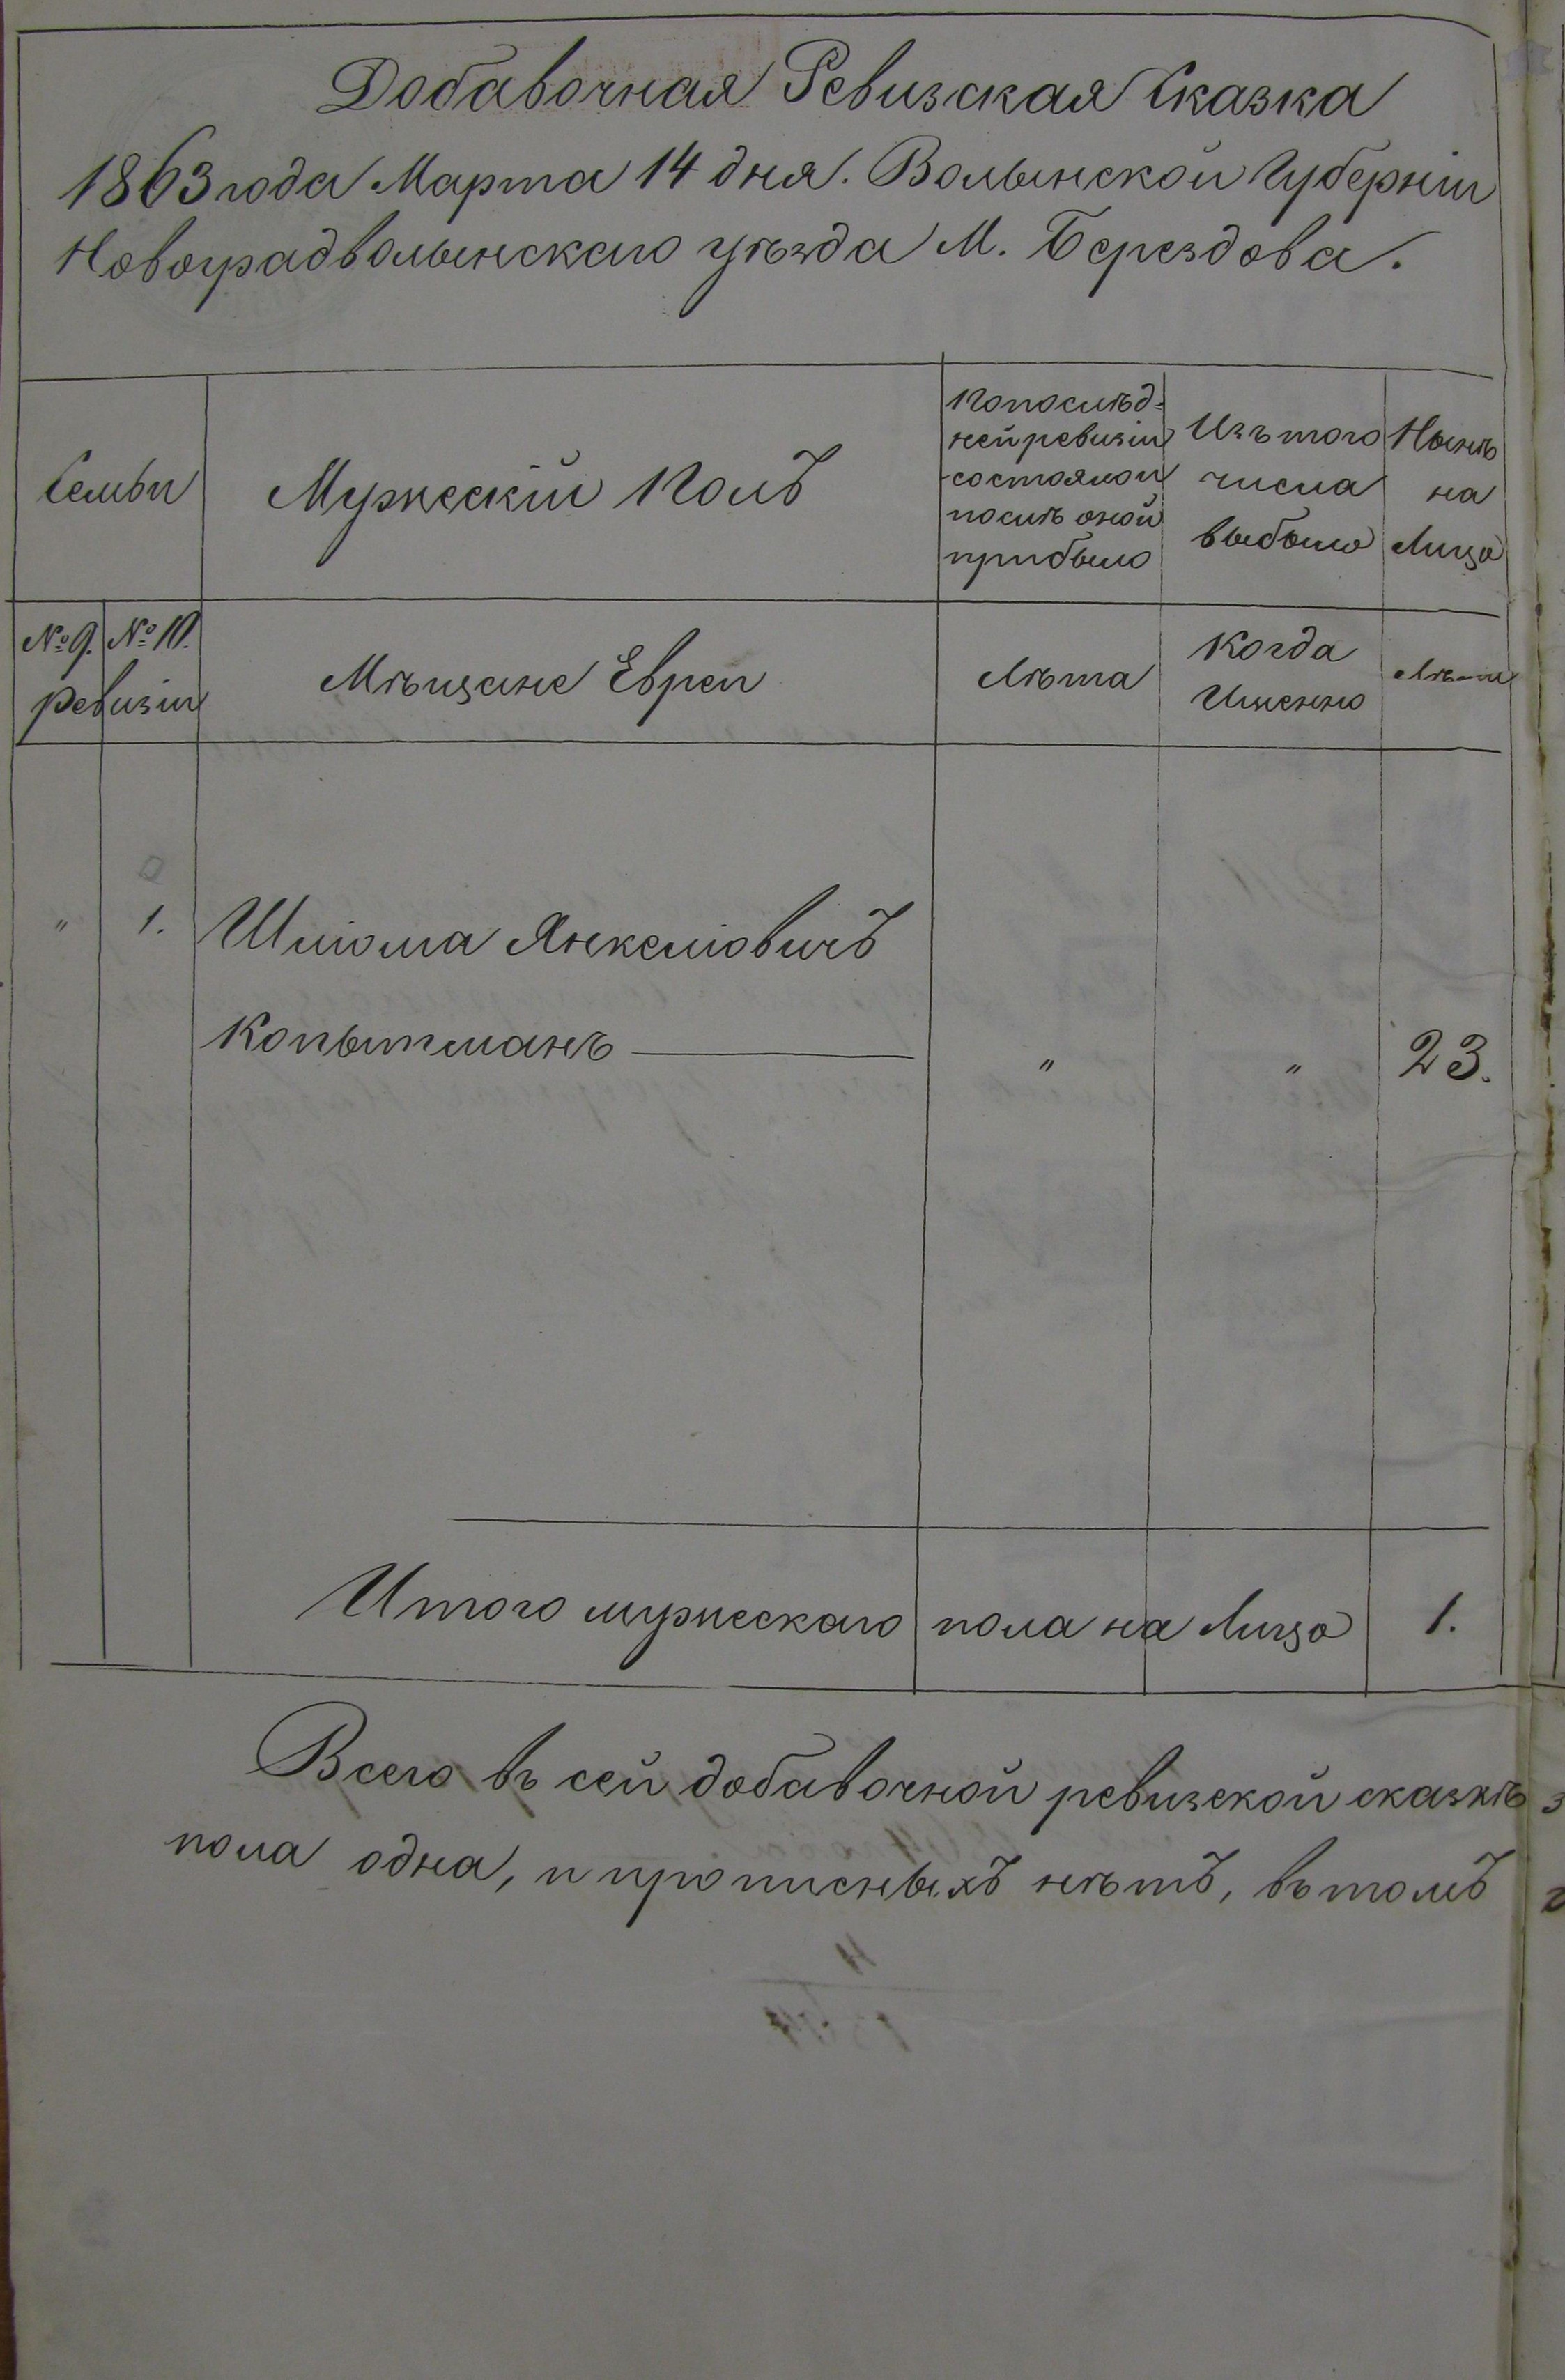 Добавочная Ревизская Сказка
1863 года Марта 14 дня. Волынской Губерніи
Новоградволынскаго уѣзда М. Берездова.
Семьи
Мужескій Полъ
По послѣд-
ней ревизіи
состояло и
послѣ оной
прибыло
Изъ того
числа
выбыло
Нынѣ
на
Лицо
№ 9. № 10.
ревизіи
Мѣщане Евреи
Лѣта
Когда
Именно
Лѣта
" 1. Шліома Янкеліовичъ
Копытманъ " " 23.
Итого мужескаго пола на Лицо 1.
Всего въ сей добавочной ревизской сказкѣ
пола одна, и прописныхъ нѣтъ, въ томъ